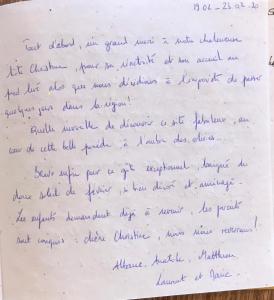 19.02 - 23.02.20
Tout d'abord, un grand merci à notre chaleureuse
hôte Christine, pour sa réactivité et son accueil au
pied levé alors que nous décidions à l'improviste de passer
quelques jours dans la région !
Quelle merveille de découvrir ce site fabuleux, au
cœur de cette belle pinède, à l'ombre des chênes...
Séjour enfin pour ce gîte exceptionnel, baigné du
doux soleil de février, si bien décoré et aménagé.
Les enfants demandent déjà à revenir, les parents
sont conquis : chère Christine, nous nous reverrons !
Mathieu
Laurent et Marie